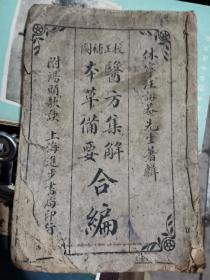 校正補圖
休寧汪訒菴先生著輯
醫方集解
本草備要
合編
附湯頭歌訣
上海進步書局印行